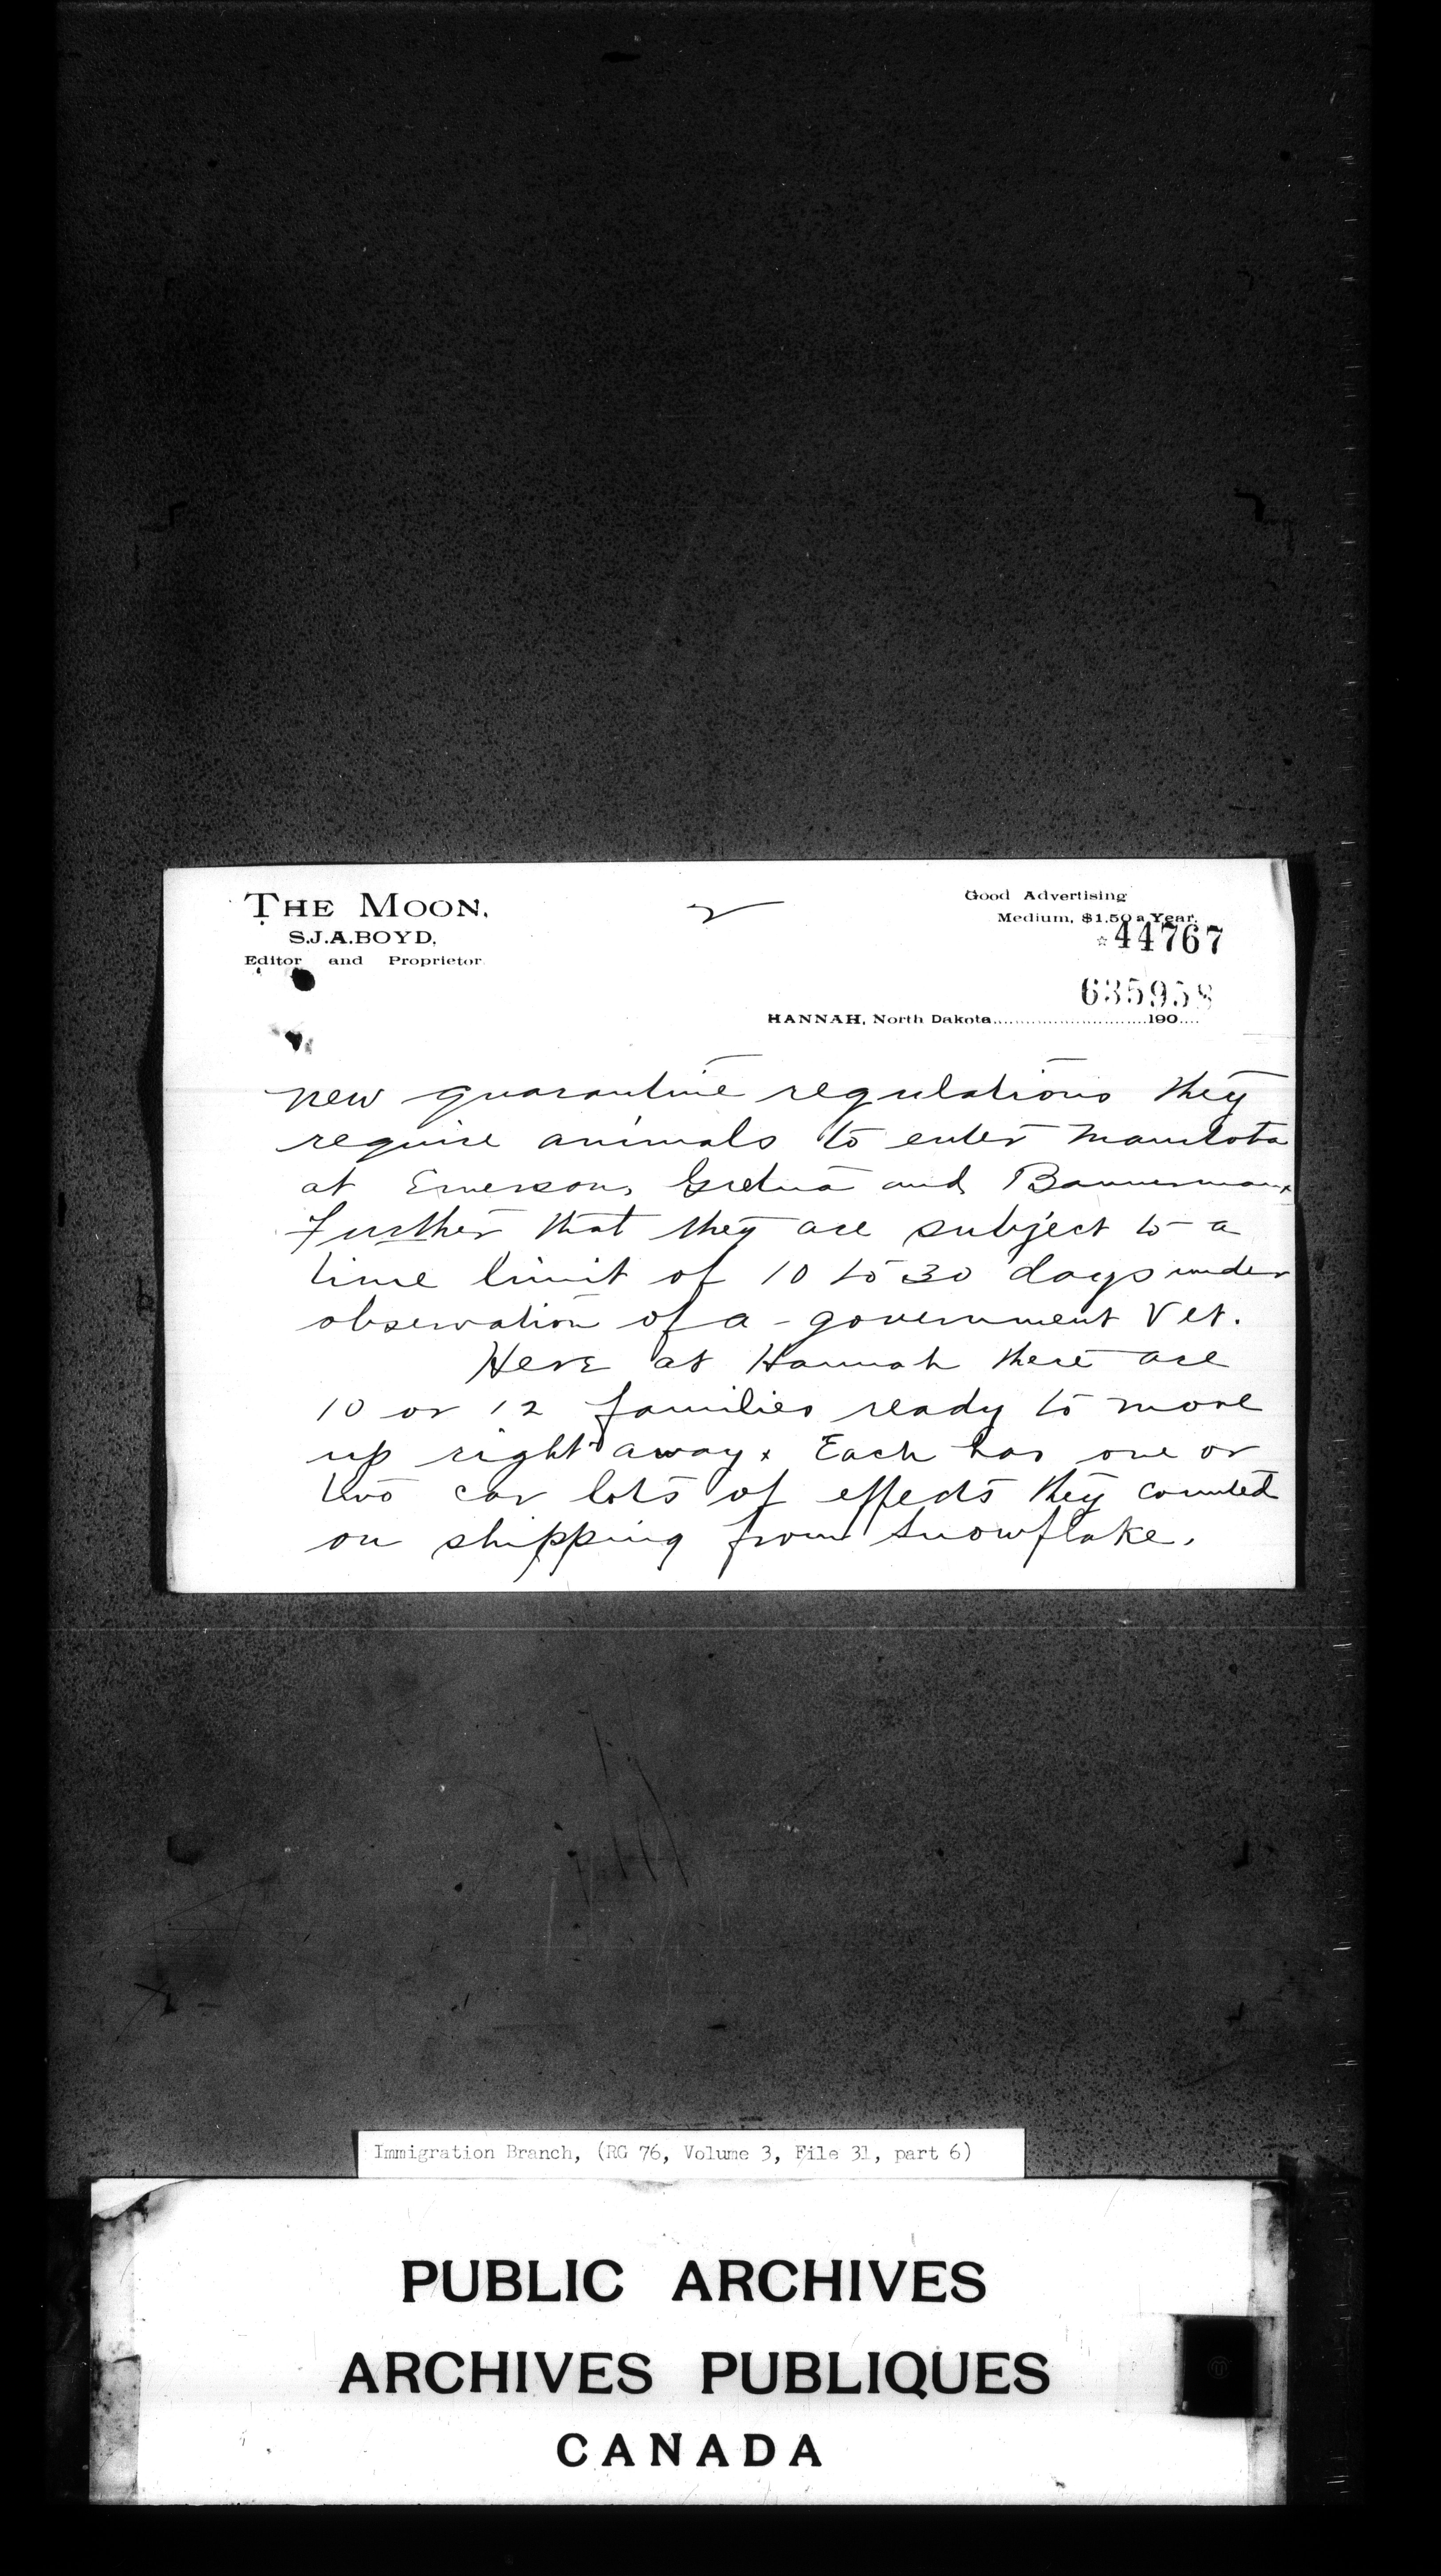 THE MOON.
S.J.A.BOYD,
Editor and Proprietor.
2
Good Advertising
Medium, $1.50 a Year.
☆44767
635958
HANNAH, North Dakota..........................190....
new quarantine regulations they
require animals to enter Manitoba
at Emerson, Gretna and Bannerman.
Further that they are subject to a
time limit of 10 to 30 days under
observation of a government Vet.
Here at Hannah there are
10 or 12 families ready to move
up right away. Each has one or
two car lots of effects they counted
on shipping from Snowflake.
Immigration Branch, (RG 76, Volume 3, File 31, part 6)
PUBLIC ARCHIVES
ARCHIVES PUBLIQUES
CANADA